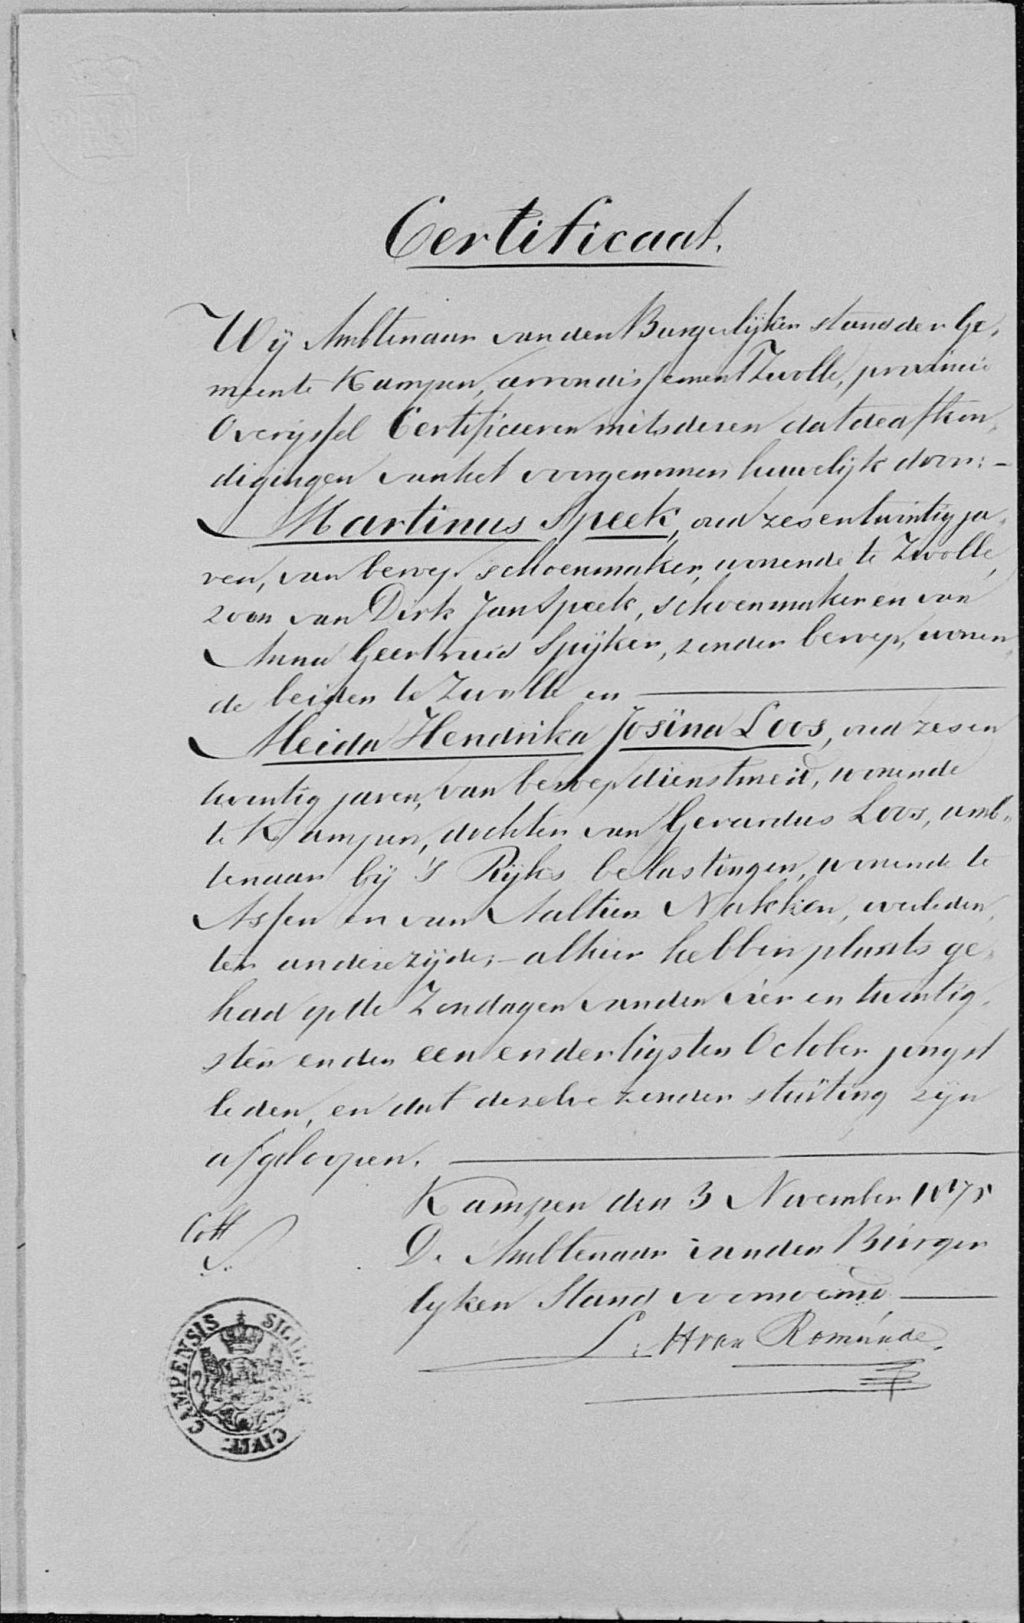 Certificaat.
Wij Ambtenaar van den Burgerlijken stand der Ge-
meente Kampen, arrondissement Zwolle, provincie
Overijssel Certificeeren mitsdezen dat de afkon-
digingen van het voorgenomen huwelijk door: -
Martinus Speek, oud zesentwintig ja-
ren, van beroep schoenmaker, wonende te Zwolle,
zoon van Dirk Jan Speek, schoenmaker en van
Anna Geertruid Spijker, zonder beroep, wonen-
de beiden te Zwolle en
Aleida Hendrika Josina Loos, oud zesen
twintig jaren, van beroep dienstmeid, wonende
te Kampen, dochter van Gerardus Loos, amb-
tenaar bij 's Rijks belastingen, wonende te
Assen en van Aaltien Nakken, overleden,
ter andere zijde; - alhier hebben plaats ge-
had op de Zondagen van den vier en twintig-
sten en den een en dertigsten October jongst
leden, en dat dezelve zonder stuiting zijn
afgeloopen.
Kampen den 3 November 1875
De Ambtenaar van den Burger
lijken Stand voornoemd,
L. H van Romunde.
SIGILLUM CIVIT: CAMPENSIS